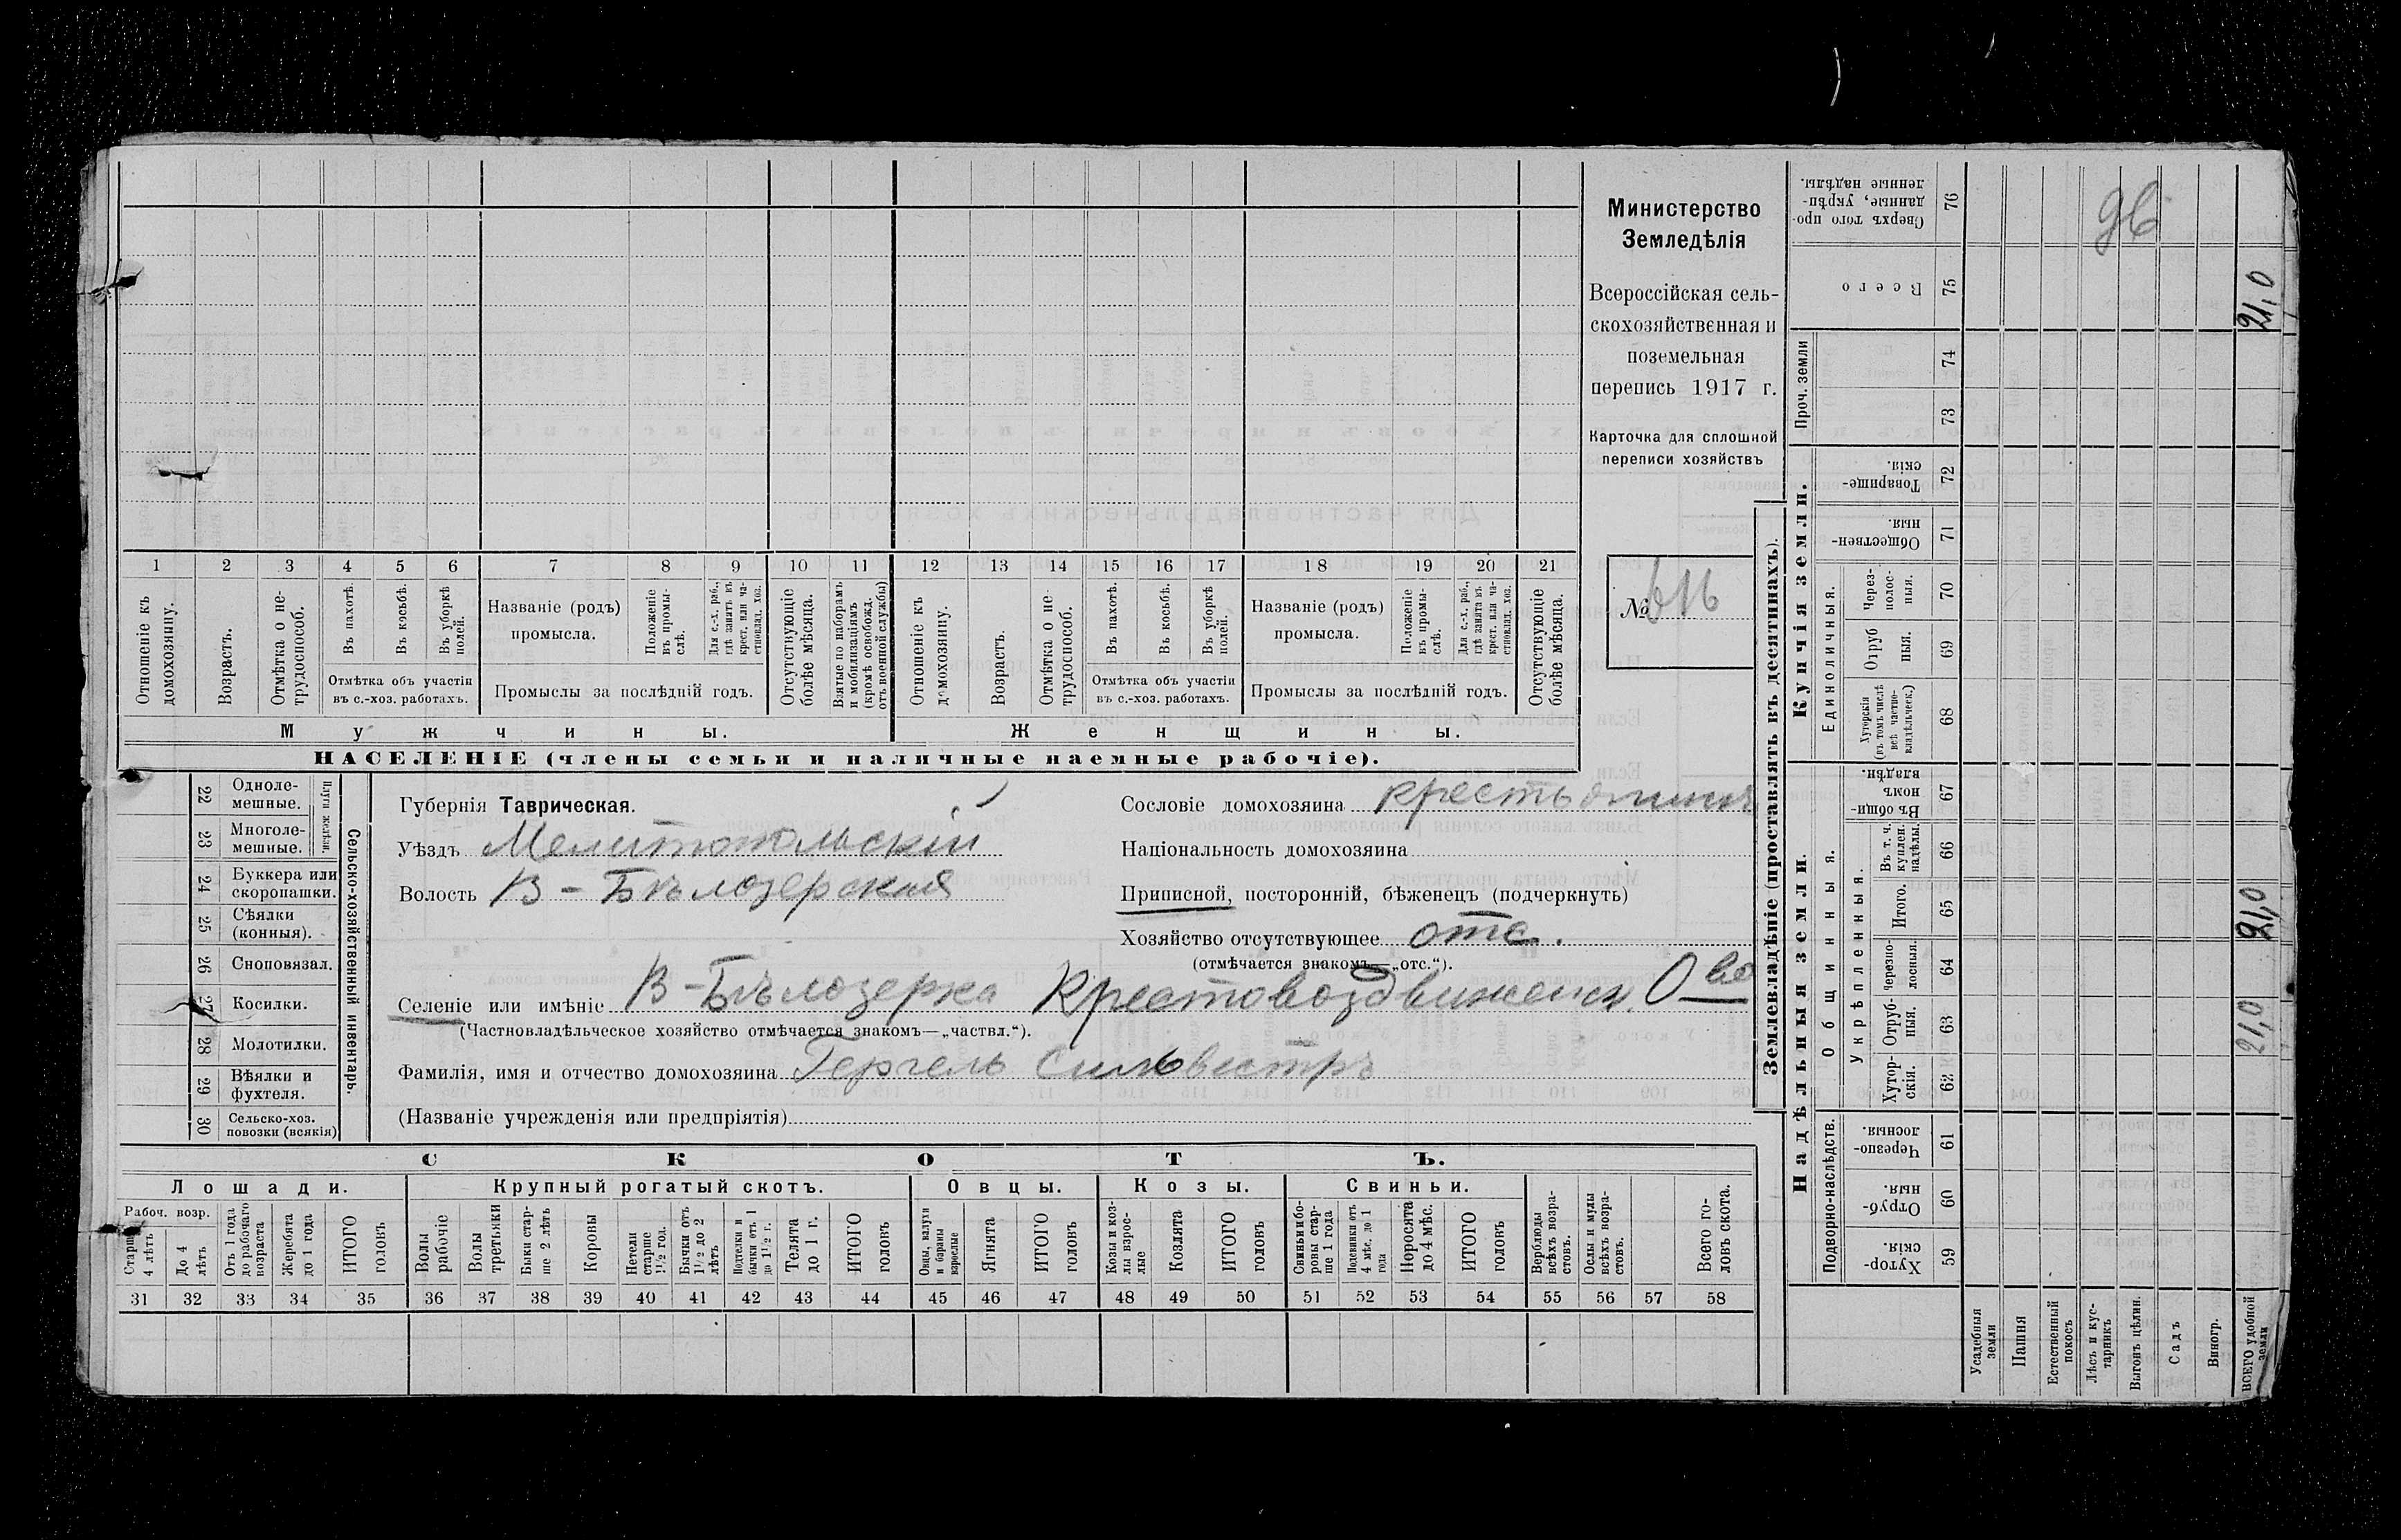 Министерство
Земледѣлія
Всероссійская сель-
скохозяйственная и
поземельная
перепись 1917 г.
Карточка для сплошной
переписи хозяйствъ
№
1 2 3 4 5 6 7 8 9 10 11 12 13 14 15 16 17 18 19 20 21
Отношеніе къ домохозяину.
Возрастъ.
Отмѣтка о не-трудоспособ.
Въ пахотѣ.
Въ косьбѣ.
Въ уборкѣ полей.
Отмѣтка объ участіи
въ с.-хоз. работахъ.
Названіе (родъ)
промысла.
Положеніе въ промы-слѣ.
Для с.-х. раб., гдѣ занятъ въ крест. или ча-стновлад. хоз.
Промыслы за послѣдній годъ.
Отсутствующіе болѣе мѣсяца.
Взятые по наборамъ и мобилизаціямъ (кромѣ освобожд. отъ военной службы)
Отношеніе къ домохозяину.
Возрастъ.
Отмѣтка о не-трудоспособ.
Въ пахотѣ.
Въ косьбѣ.
Въ уборкѣ полей.
Отмѣтка объ участіи
въ с.-хоз. работахъ.
Названіе (родъ)
промысла.
Положеніе въ промы-слѣ.
Для с.-х. раб., гдѣ занята въ крест. или ча-стновлад. хоз.
Промыслы за послѣдній годъ.
Отсутствующіе болѣе мѣсяца.
Мужчины.
Женщины.
НАСЕЛЕНІЕ (члены семьи и наличные наемные рабочіе).
22 Одноле-мешные.
23 Многоле-мешные.
Плуги желѣзн.
24 Буккера или скоропашки.
25 Сѣялки (конныя).
26 Сноповязал.
27 Косилки.
28 Молотилки.
29 Вѣялки и фухтеля.
30 Сельско-хоз. повозки (всякія)
Сельско-хозяйственный инвентарь.
Губернія Таврическая.
Уѣздъ Мелитопольскій
Волость В-Бѣлозерская
Селеніе или имѣніе В-Бѣлозерка Крестовоздвиженск. О-во
(Частновладѣльческое хозяйство отмѣчается знакомъ—„частвл.“).
Фамилія, имя и отчество домохозяина Герчель Сильвестръ
(Названіе учрежденія или предпріятія)
Сословіе домохозяина крестьянинъ
Національность домохозяина
Приписной, посторонній, бѣженецъ (подчеркнуть)
Хозяйство отсутствующее отс.
(отмѣчается знакомъ—„отс.“).
СКОТЪ.
Лошади. Крупный рогатый скотъ. Овцы. Козы. Свиньи.
Рабоч. возр.
Старше 4 лѣтъ
До 4 лѣтъ
Отъ 1 года до рабочаго возраста
Жеребята до 1 года
ИТОГО головъ
Волы рабочіе
Волы третьяки
Быки стар-ше 2 лѣтъ
Коровы
Нетели старше 1½ год.
Бычки отъ 1½ до 2 лѣтъ
Подтелки и бычки отъ 1 до 1½ г.
Телята до 1 г.
ИТОГО головъ
Овцы, валухи и бараны взрослые
Ягнята
ИТОГО головъ
Козы и коз-лы взрос-лые
Козлята
ИТОГО головъ
Свиньи и бо-ровы стар-ше 1 года
Подсвинки отъ 4 мѣс. до 1 года
Поросята до 4 мѣс.
ИТОГО головъ
Верблюды всѣхъ возра-стовъ.
Ослы и мулы всѣхъ возра-стовъ.
Всего го-ловъ скота.
31 32 33 34 35 36 37 38 39 40 41 42 43 44 45 46 47 48 49 50 51 52 53 54 55 56 57 58
Землевладѣніе (проставлять въ десятинахъ).
Купчія земли.
Надѣльныя земли.
Сверхъ того про-данные, укрѣп-ленные надѣлы. 76
Всего 75 21,0
Проч. земли 74 73
Товарище-скія. 72
Обществен-ныя. 71
Единоличныя.
Через-полос-ныя. 70
Отруб ныя. 69
Хуторскія (въ томъ числѣ всѣ частно-владѣльческ.) 68
Общинныя.
Въ общи-номъ владѣн. 67
Укрѣпленныя.
Въ т. ч. куплен. надѣлы. 66
Итого. 65 21,0
Черезпо-лосныя. 64
Отруб-ныя. 63 21,0
Хутор-скія. 62
Подворно-наслѣдств.
Черезпо-лосныя. 61
Отруб-ныя. 60
Хутор-скія. 59
Усадебныя земли
Пашня
Естественный покосъ
Лѣсъ и кус-тарникъ
Выгонъ цѣлин.
Садъ
Виногр.
ВСЕГО удобной земли